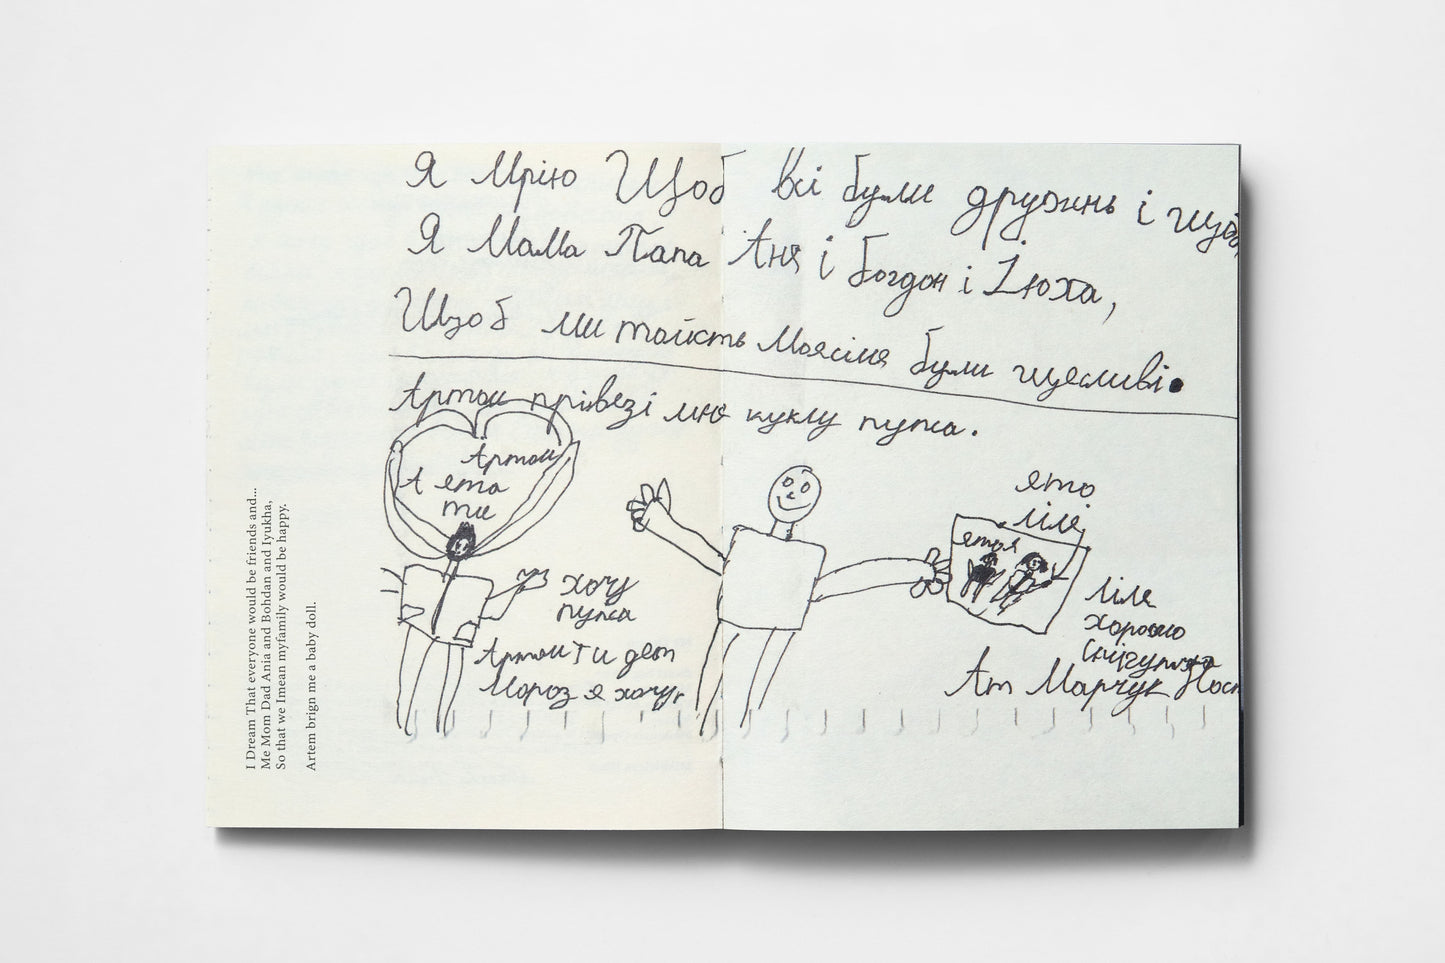 Я Мрію Щоб Всі були дружнь і щоб
Я Мама Папа Аня і Богдон і Іюха,
Щоб ми тоїсть Моясімя були щесливі.
Артом прівезі мне куклу пупса.
Артом
А ето
ти
хочу
пупса
Артом Ти дет
Мороз я хочу
ето
ліля
етоя
Ліля
хорошо
Снігурочка
Ат Марчук
I Dream That everyone would be friends and...
Me Mom Dad Ania and Bohdan and Iyukha,
So that we Imean myfamily would be happy.
Artem brign me a baby doll.